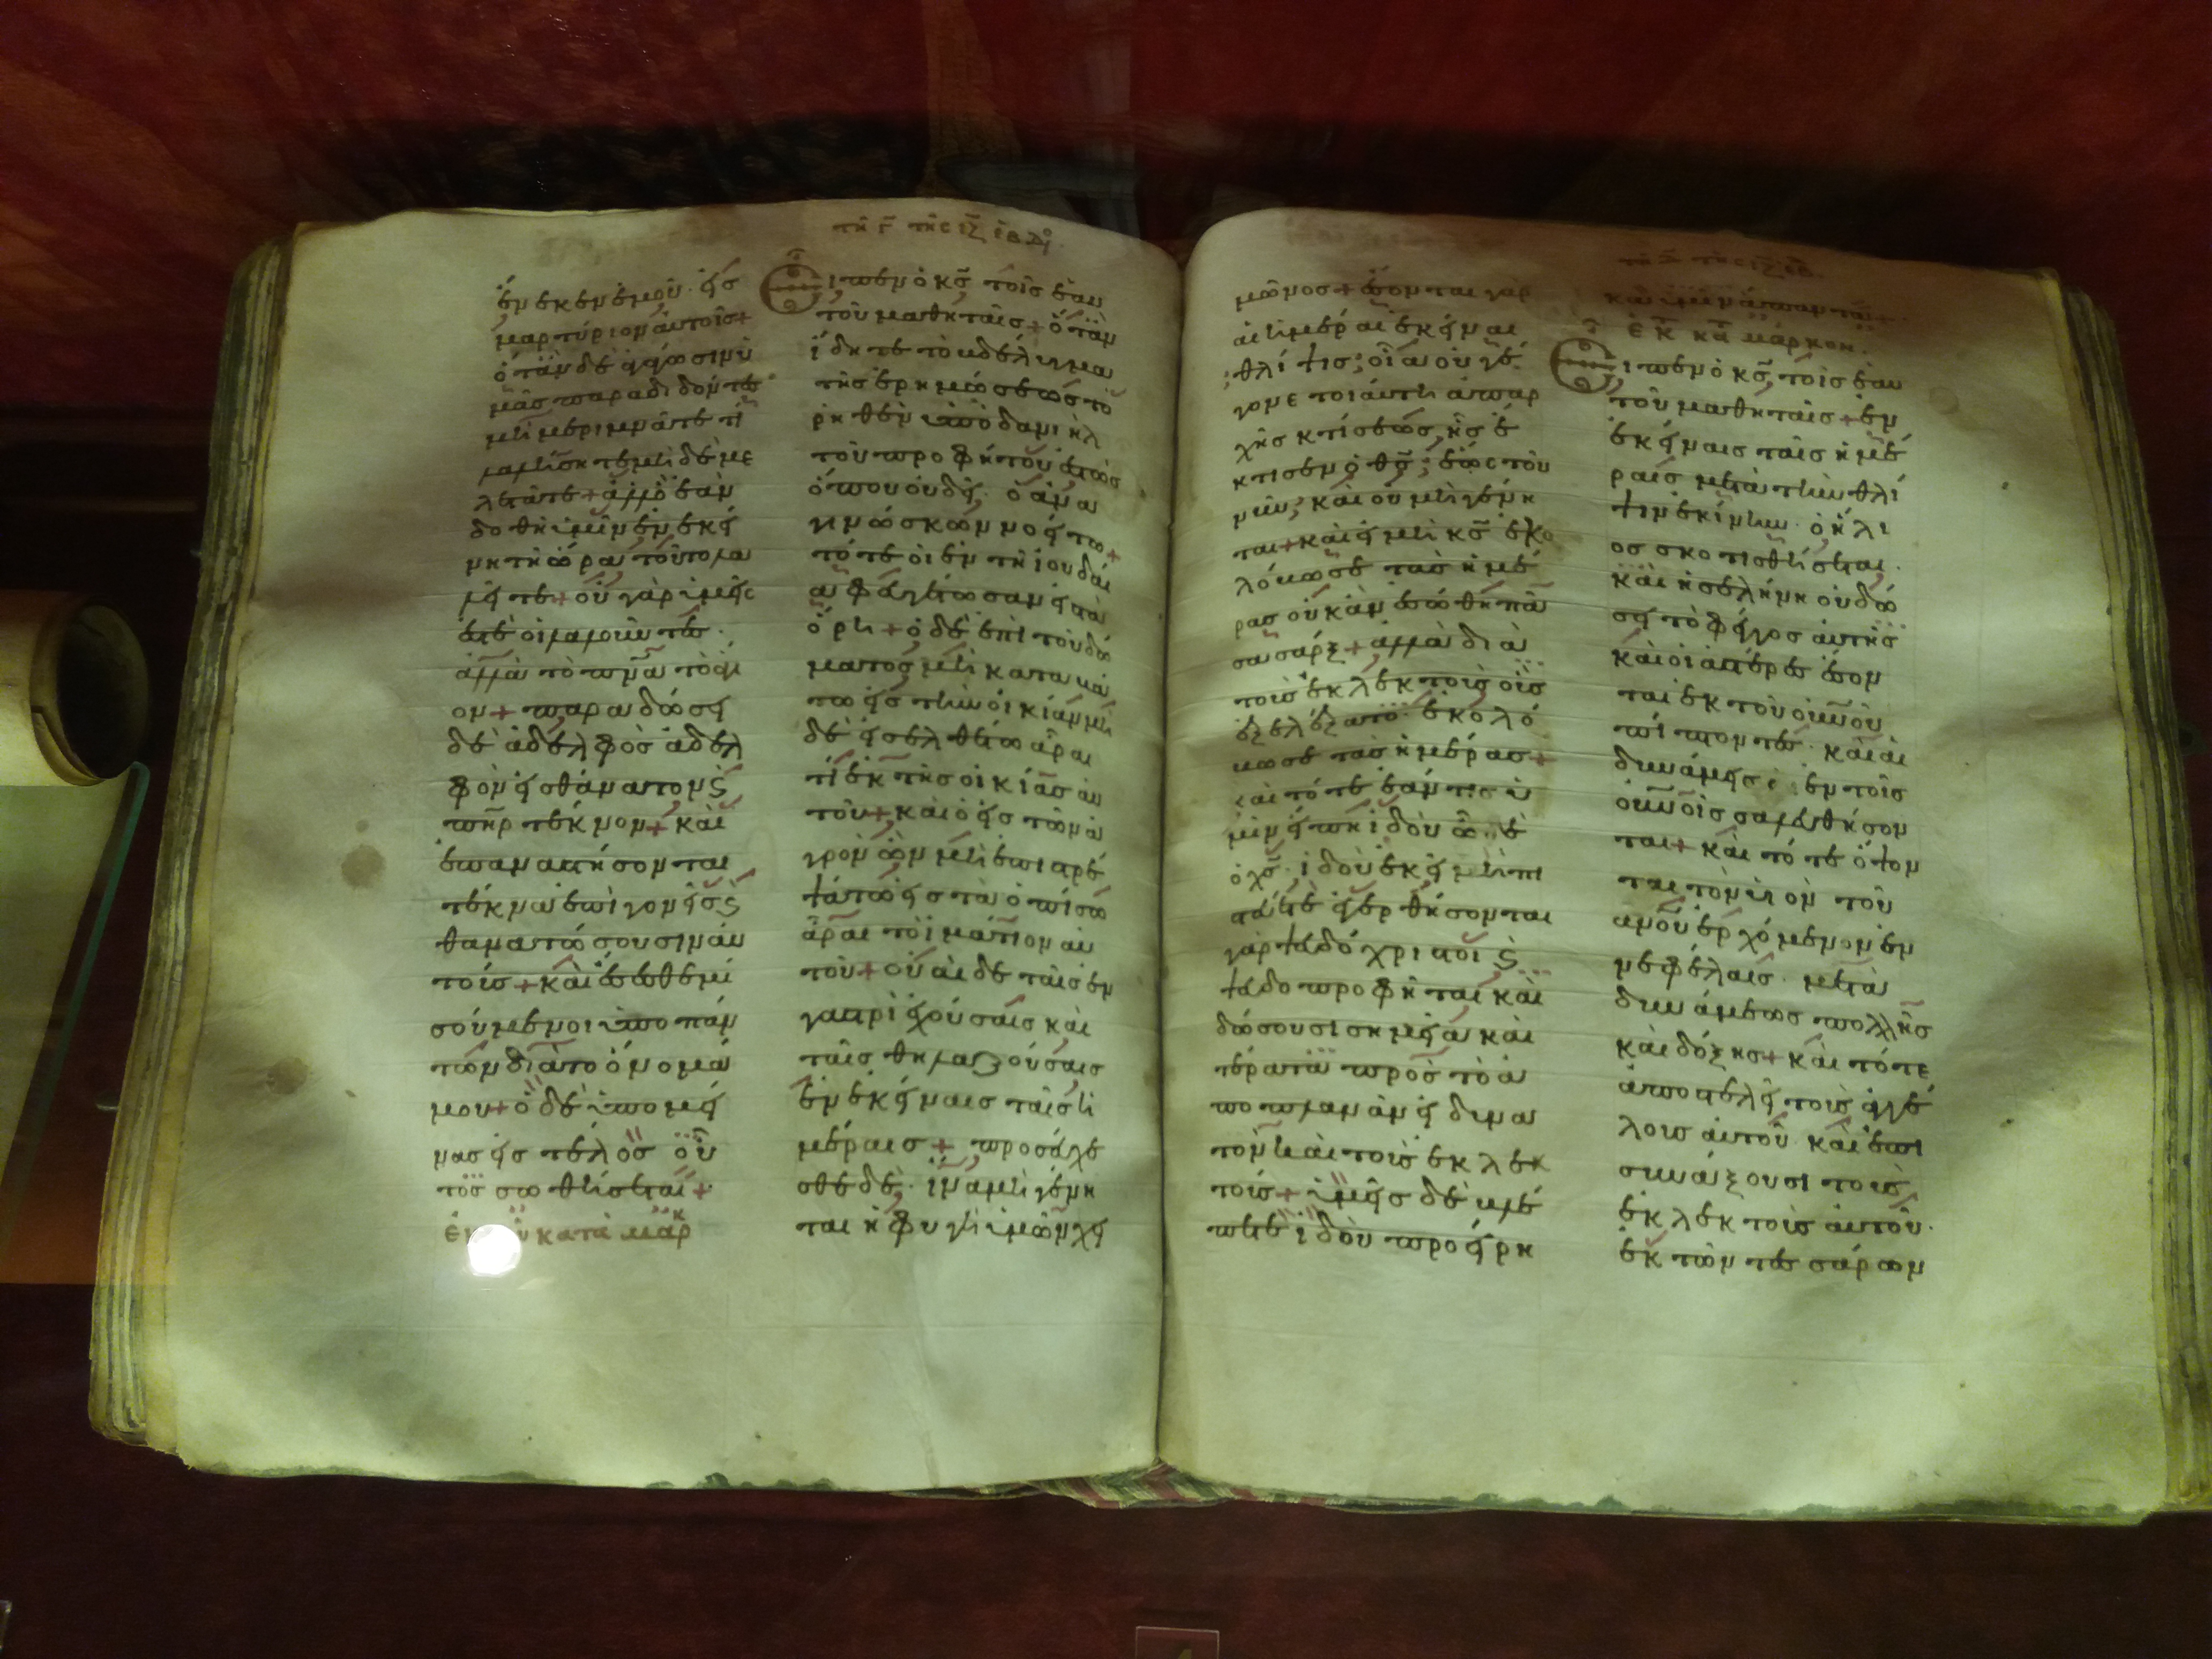 ἕνεκεν ἐμοῦ· εἰς
μαρτύριον αὐτοῖς+
ὅταν δὲ ἀγάγωσιν ὑ
μᾶς παραδιδόντες
μὴ μεριμνᾶτε τί
λαλήσητε μηδὲ με
λετᾶτε+ ἀλλ' ὃ ἐὰν
δοθῆ ὑμῖν ἐν ἐκεί
νη τῆ ὥρα τοῦτο λα
λεῖτε+ οὐ γὰρ ὑμεῖς
ἐστὲ οἱ λαλοῦντες.
ἀλλὰ τὸ πν̅α̅ τὸ ἅγι
ον+ παραδώσει
δὲ ἀδελφὸς ἀδελ
φὸν εἰς θάνατον ϛ
πη̅ρ τέκνον+ καὶ
ἐπαναστήσονται
τέκνα ἐπὶ γονεῖς ϛ
θανατώσουσιν αὐ
τούς+ καὶ ἔσεσθε μι
σούμενοι ὑπὸ πάν
των διὰ τὸ ὄνομά
μου+ ὁ δὲ ὑπομεί
νας εἰς τέλος οὗ
τος σωθήσεται+
κατὰ μάρκ
τῆ γ̅ τῆς ιζ̅ ἑβδ
Εἶπεν ὁ κ̅ς̅ τοῖς ἑαυ
τοῦ μαθηταῖς+ ὅταν
ἴδητε τὸ βδέλυγμα
τῆς ἐρημώσεως τὸ
ῥηθὲν ὑπὸ δανιὴλ
τοῦ προφήτου ἑστὼς
ὅπου οὐ δεῖ· ὁ ἀνα
γινώσκων νοείτω+
τότε οἱ ἐν τῆ ἰουδαί
α φευγέτωσαν εἰς τὰ
ὄρη+ ὁ δὲ ἐπὶ τοῦ δώ
ματος μὴ καταβά
τω εἰς τὴν οἰκίαν μη
δὲ εἰσελθέτω ἆραι
τὶ ἐκ τῆς οἰκίας αὐ
τοῦ+ καὶ ὁ εἰς τὸν ἀ
γρὸν ὢν μὴ ἐπιστρε
ψάτω εἰς τὰ ὀπίσω
ἆραι τὸ ἱμάτιον αὐ
τοῦ+ οὐαὶ δὲ ταῖς ἐν
γαστρὶ ἐχούσαις καὶ
ταῖς θηλαζούσαις
ἐν ἐκείναις ταῖς ἡ
μέραις+ προσεύχε
σθε δὲ· ἵνα μὴ γένη
ται ἡ φυγὴ ὑμῶν χει
μῶνος+ ἔσονται γὰρ
αἱ ἡμέραι ἐκεῖναι
θλίψις· οἵα οὐ γέ
γονε τοιαύτη ἀπαρ
χῆς κτίσεως, ἧς ἔ
κτισεν ὁ θ̅ς̅· ἕως τοῦ
νῦν· καὶ οὐ μὴ γένη
ται+ καὶ εἰ μὴ κ̅ς̅ ἐκο
λόβωσε τὰς ἡμέ
ρας οὐκ ἂν ἐσώθη πᾶ
σα σάρξ+ ἀλλὰ διὰ
τοὺς ἐκλεκτοὺς οὓς
ἐξελέξατο· ἐκολό
βωσε τὰς ἡμέρας+
καὶ τότε ἐάν τις ὑ
μῖν εἴπη ἰδοὺ ὧδε
ὁ χ̅ς̅· ἰδοὺ ἐκεῖ μὴ πι
στεύετε ἐγερθήσονται
γὰρ ψευδόχριστοι ϛ
ψευδοπροφῆται καὶ
δώσουσι σημεῖα καὶ
τέρατα πρὸς τὸ ἀ
ποπλανᾶν εἰ δυνα
τὸν καὶ τοὺς ἐκλεκ
τούς+ ὑμεῖς δὲ βλέ
πετε ἰδοὺ προείρη
κα ὑμῖν ἅπαντα+
τῆ δ̅ τῆς ιζ̅ ἑβ
ἐκ τοῦ κατὰ μάρκον.
Εἶπεν ὁ κ̅ς̅ τοῖς ἑαυ
τοῦ μαθηταῖς+ ἐν
ἐκείναις ταῖς ἡμέ
ραις μετὰ τὴν θλί
ψιν ἐκείνην· ὁ ἥλι
ος σκοτισθήσεται.
καὶ ἡ σελήνη οὐ δώ
σει τὸ φέγγος αὐτῆς
καὶ οἱ ἀστέρες ἔσον
ται ἐκ τοῦ οὐ̅νο̅ῦ
πίπτοντες· καὶ αἱ
δυνάμεις αἱ ἐν τοῖς
οὐ̅νο̅ῖς σαλευθήσον
ται+ καὶ τότε ὄψον
ται τὸν υἱὸν τοῦ
α̅νο̅ῦ ἐρχόμενον ἐν
νεφέλαις· μετὰ
δυνάμεως πολλῆς
καὶ δόξης+ καὶ τότε
ἀποστελεῖ τοὺς ἀγγέ
λους αὐτοῦ καὶ ἐπι
συνάξουσι τοὺς
ἐκλεκτοὺς αὐτοῦ·
ἐκ τῶν τεσσάρων